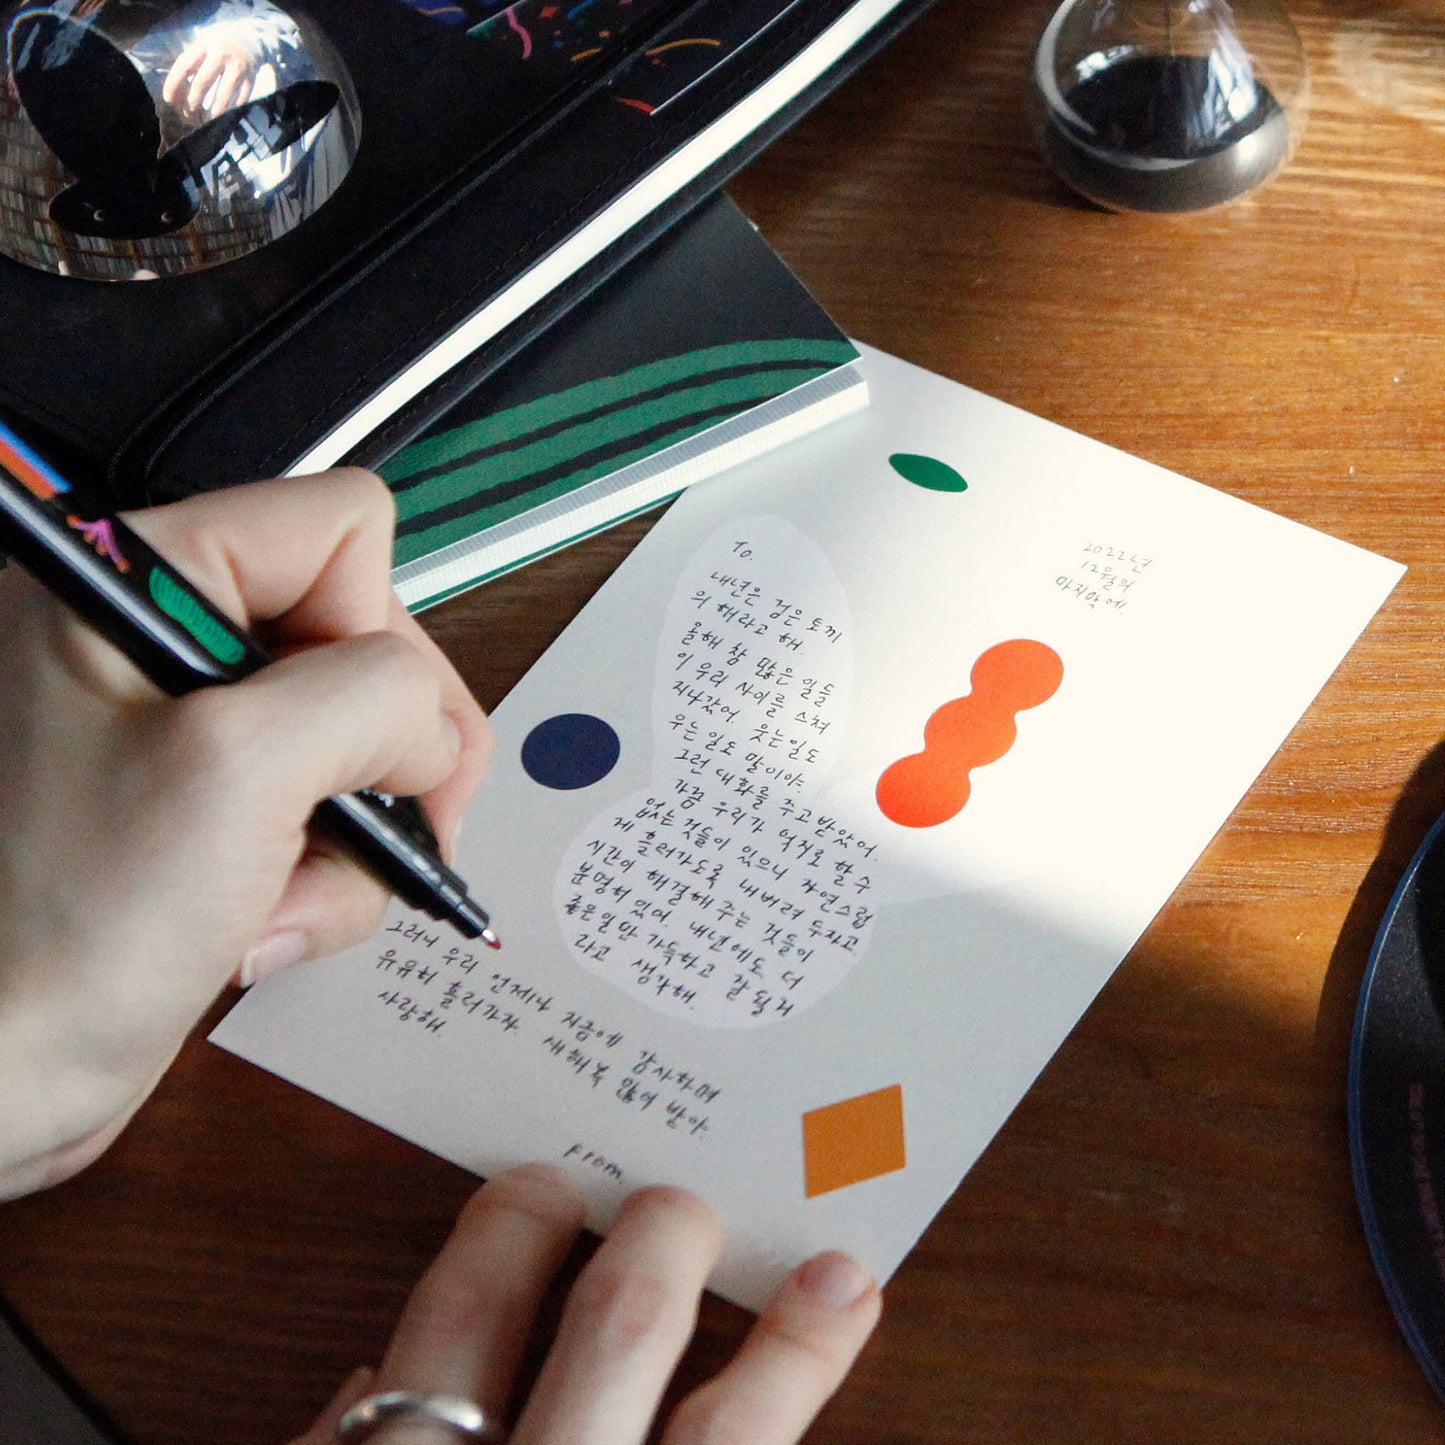 2022년
12월의
마지막에.
To.
내년은 검은 토끼
의 해라고 해.
올해 참 많은 일들
이 우리 사이를 스쳐
지나갔어. 웃는일도
우는일도 말이야.
그런 대화를 주고받았어.
가끔 우리가 억지로 할 수
없는 것들이 있으니 자연스럽
게 흘러가도록 내버려 두자고.
시간이 해결해 주는 것들이
분명히 있어. 내년에도 더
좋은일만 가득하고 잘 될거
라고 생각해.
그러니 우리 언제나 지금에 감사하며
유유히 흘러가자. 새해복 많이 받아.
사랑해.
From.